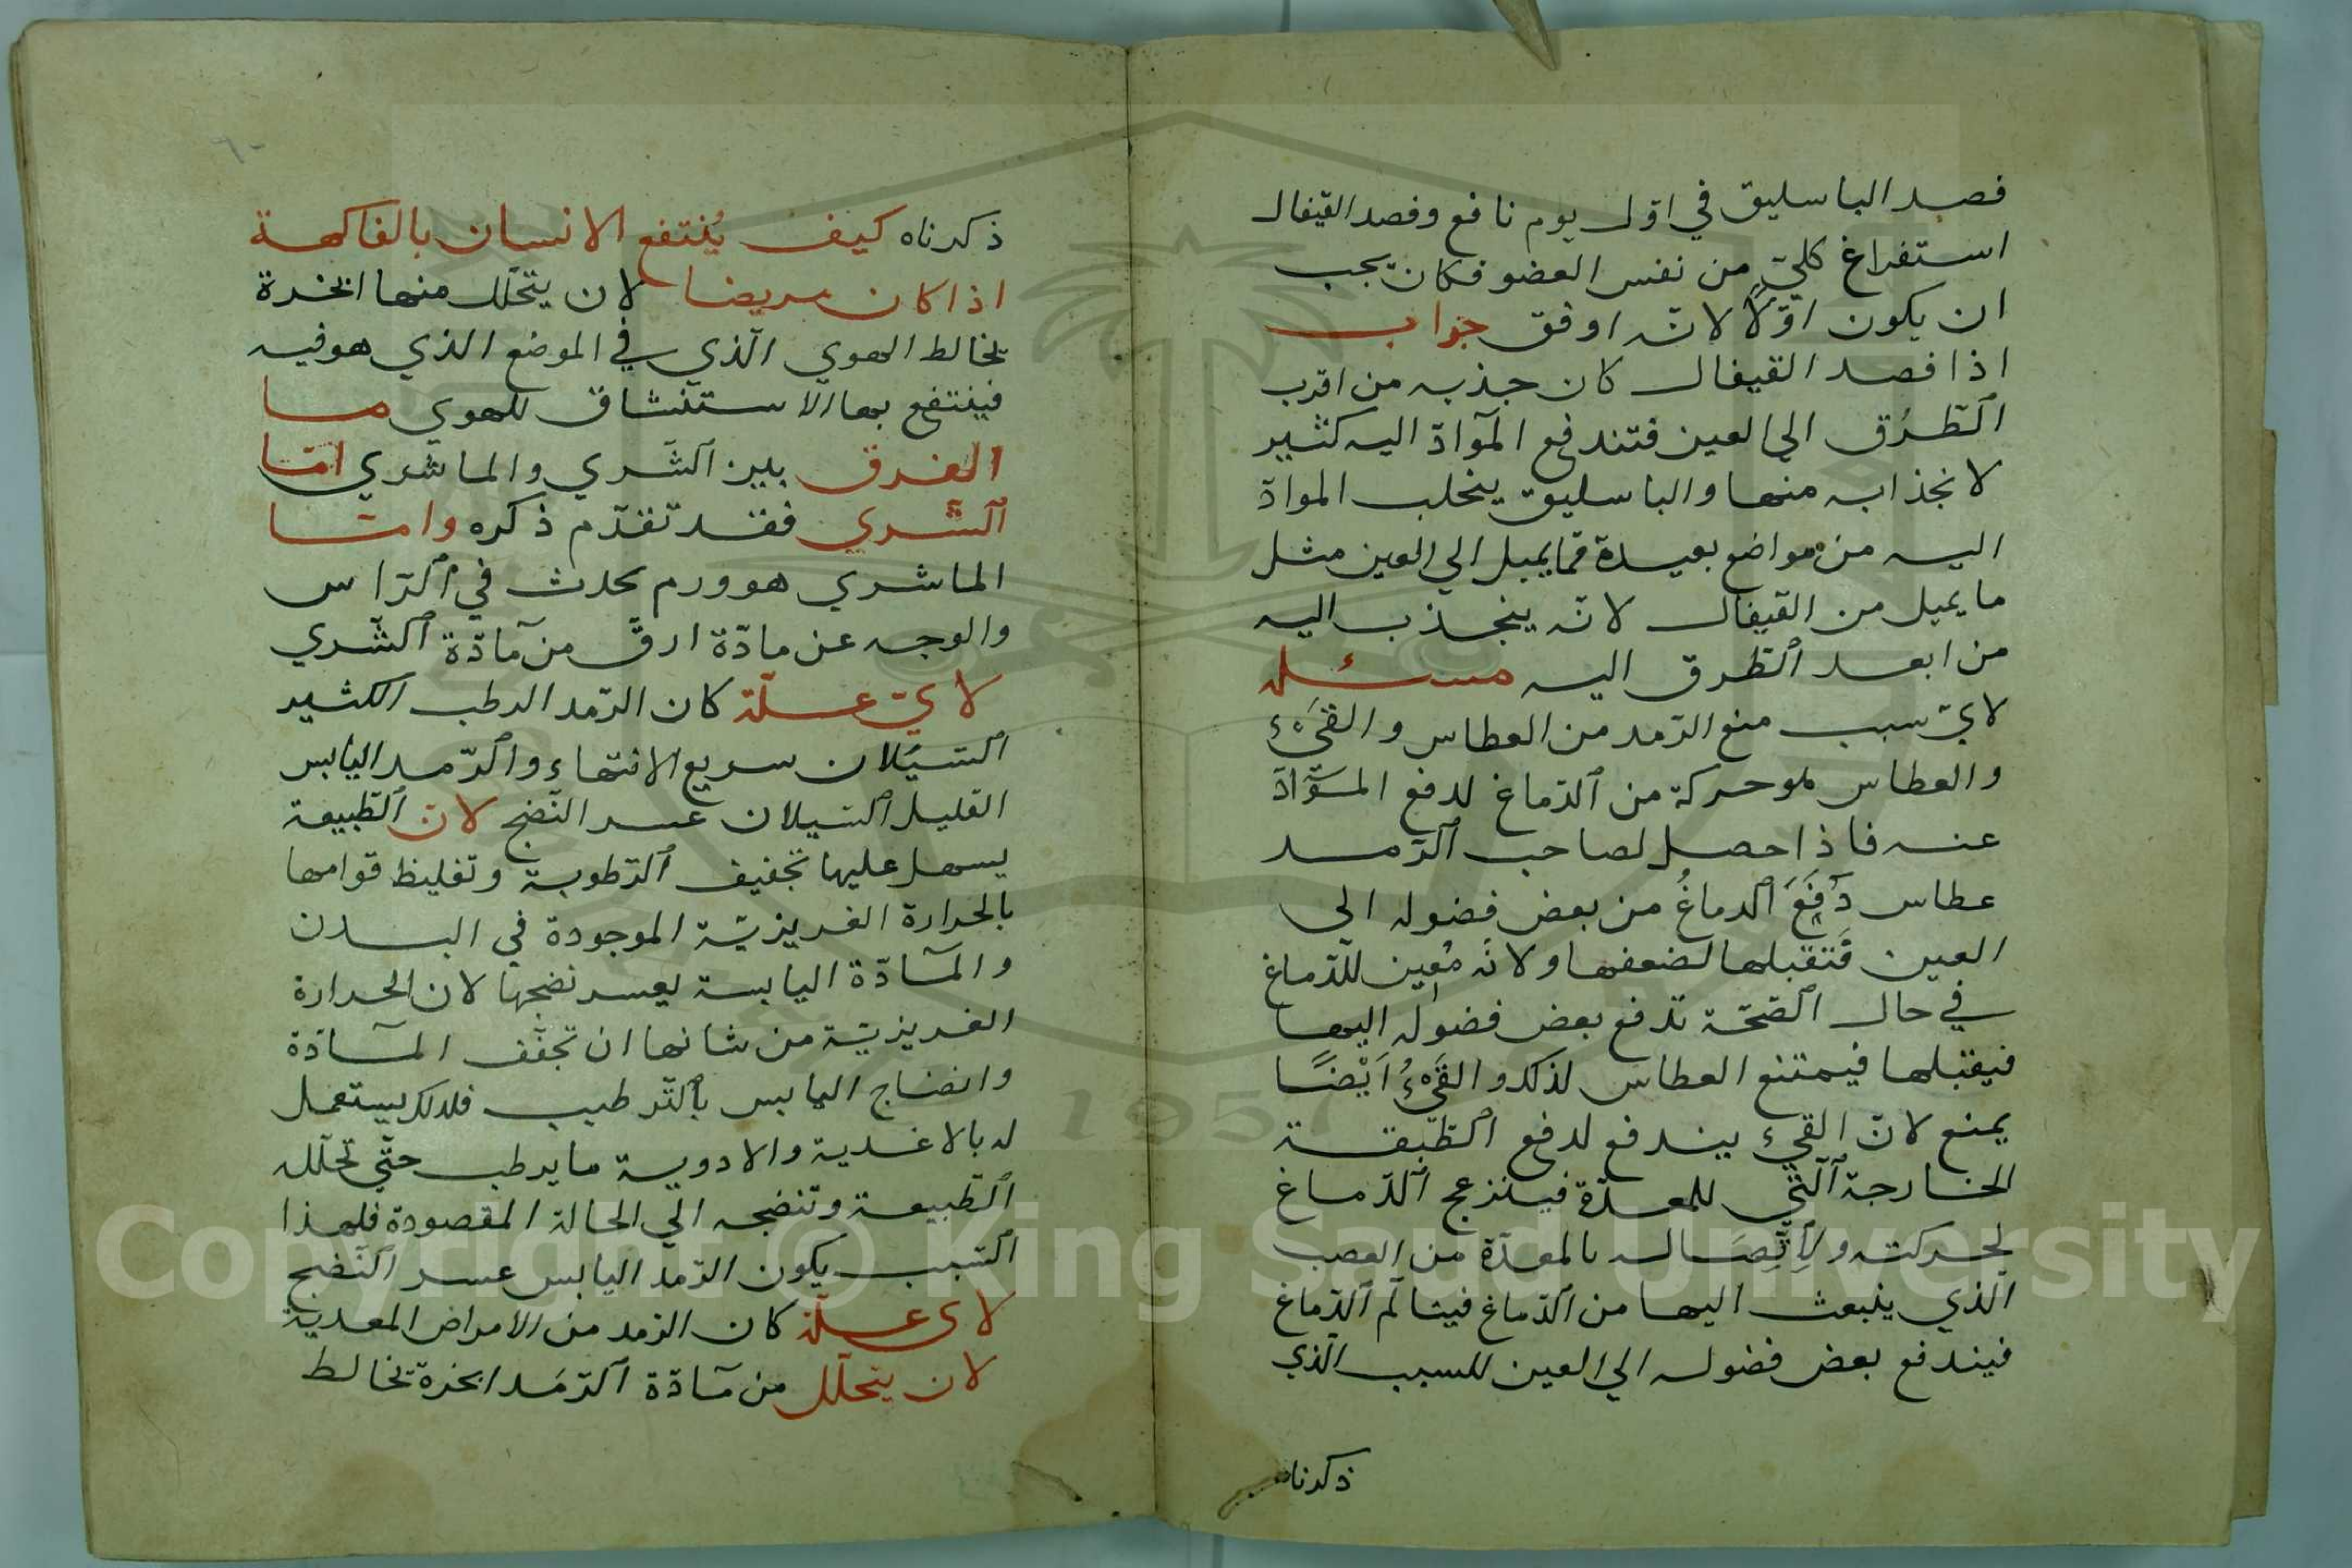 فصد الباسليق في اوّل يوم نافع وفصد القيفال
استفراغ كليّ من نفس العضو فكان يجب
ان يكون اوّلًا لانّه اوفق جواب
اذا فصد القيفال كان جذبه من اقرب
الطُّرُق الي العين فتندفع الموادّ اليه كثير
لانجذابه منها والباسليق ينجلب الموادّ
اليه من مواضع بعيدة فما يميل الي العين مثل
ما يميل من القيفال لانّه ينجذب اليه
من ابعد الطرق اليه مسئله
لايّ سبب منع الرّمد من العطاس والقيء
والعطاس هو حركة من الدّماغ لدفع الموادّ
عنه فاذا حصل لصاحب الرّمد
عطاس دَفَعَ الدماغُ من بعض فضوله الي
العين فتقبلها لضعفها ولانّه مُعين للدّماغ
في حال الصّحّة تدفع بعض فضوله اليها
فيقبلها فيمتنع العطاس لذلك والقَيْءُ اَيْضًا
يمنع لانّ القيء يندفع لدفع الطّبقة
الخارجة الّتي للمعدة فينزعج الدّماغ
لحركته ولاِتِّصَاله بالمعدة من العصب
الّذي ينبعث اليها من الدّماغ فيتالّم الدّماغ
فيندفع بعض فضوله الي العين للسبب الّذي
ذكرناه
ذكرناه كيف يُنتفع الانسان بالفاكهة
اذا كان مريضا لان يتحلّل منها ابخرة
تخالط الهوي الّذي في الموضع الذي هو فيه
فينتفع بها الاستنشاق للهوي ما
الفرق بين الشّري والماشري امّا
الشّري فقد تقدّم ذكره وامّا
الماشري هو ورم يحدث في الرّاس
والوجه عن مادّة ارقّ من مادّة الشّري
لايّ علّة كان الرّمد الرطب الكثير
السّيَلان سريع الانتهاء والرّمد اليابس
القليل السّيلان عسر النّضج لانّ الطّبيعة
يسهل عليها تجفيف الرّطوبة وتغليظ قوامها
بالحرارة الغريزيّة الموجودة في البدن
والمادّة اليابسة يعسر نضجها لان الحرارة
الغريزيّة من شانها ان تجفّف المادّة
وانضاج اليابس بالتّرطيب فلذلك يستعمل
له بالاغدية والادوية ما يرطب حتّي تحلّله
الطّبيعة وتنضجه الي الحالة المقصودة فلهذا
السّبب يكون الرّمد اليابس عسر النّضج
لاى علّة كان الرّمد من الامراض المعدية
لان يتحلّل من مادّة الرّمَد ابخرة تخالط